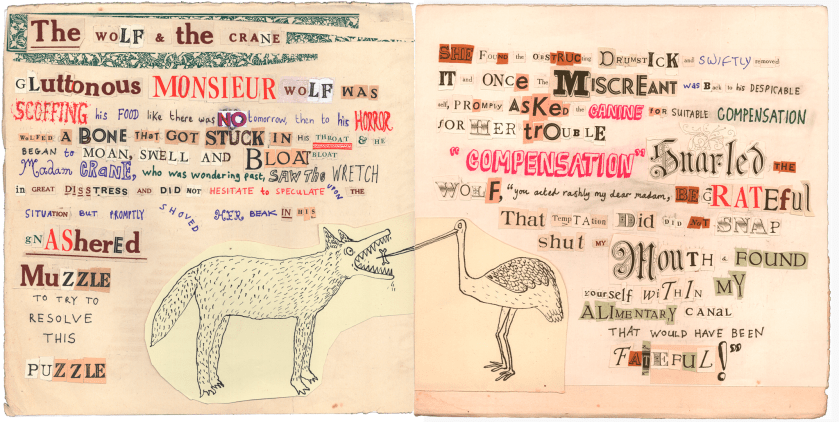 The WOLF & the CRANE
GLuttonous MONSIEUR WOLF WAS
SCOFFING his FOOD like there was NO tomorrow, then to his HORROR
WOLFED A BONE THAT GOT STUCK IN HIS THROAT & HE
BEGAN to MOAN, SWELL AND BLOAT BLOAT
Madam CRANE, who was wondering past, SAW THE WRETCH
in GREAT DISSTRESS AND DID NOT HESITATE to SPECULATE UPON THE
SITUATION BUT PROMPTLY SHOVED HER BEAK IN HIS
gNASHerED
MuZZLE
TO TRY TO
RESOLVE
THIS
PUZZLE
SHE FOUND the OBSTRUCTING DRUMSTICK and SWIFTLY removed
IT and ONCe The MISCREANT was Back to his DESPICABLE
self, PROMPLY ASKED the CANINE FOR SUITABLE COMPENSATION
FOR HER trOUBLE
"COMPENSATION" Snarled THE
WOLF, "you acted rashly my dear madam, BE GRATEful
That TempTATion Did DID NOT SNAP
shut MY MOUTH & FOUND
yourself wiTHIN MY
ALIMENTARY CANAL
THAT WOULD HAVE BEEN
FATEFUL!"